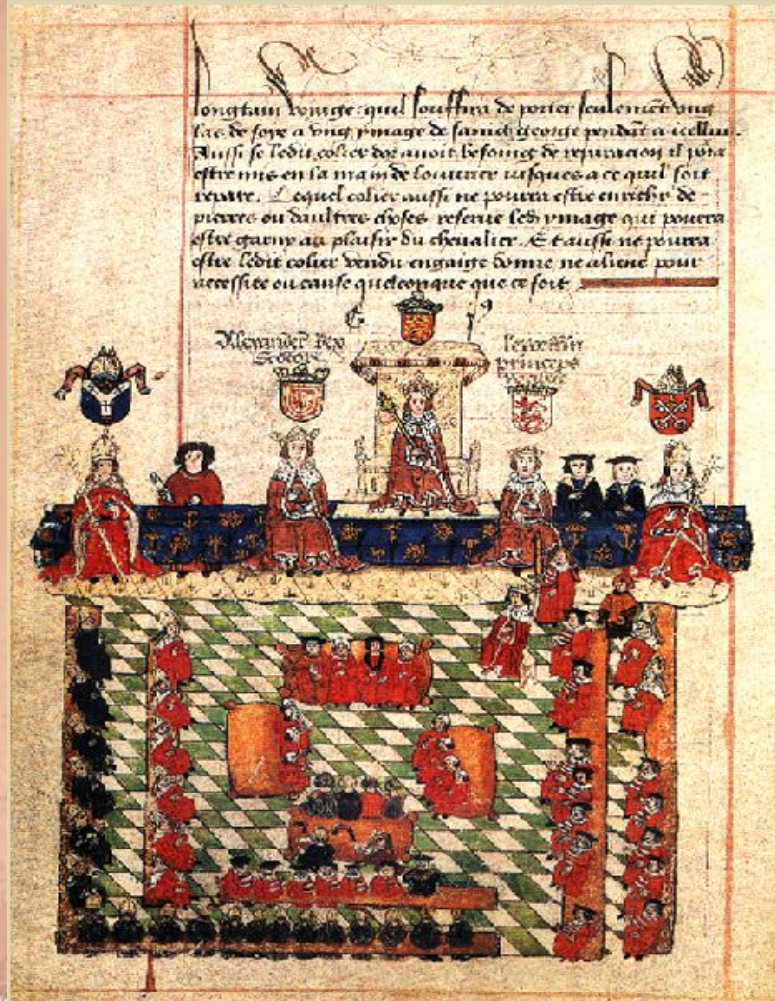 longtain voiage quil souffira de porter seulement ung
las de soye a ung ymage de sainct george pendant a icelluy.
Aussi se ledit colier dor avoit besoing de reparacion il pora
estre mis en la main de louvrier jusques a ce quil soit
repare. Lequel colier aussi ne pourra estre enrichy de
pierres ou daultres choses reserve led ymage qui pourra
estre garny au plaisir du chevalier. Et aussi ne pourra
estre ledit colier vendu engaige donne ne aliene pour
necessite ou cause quelconque que ce soit
Alexander Rex
princeps